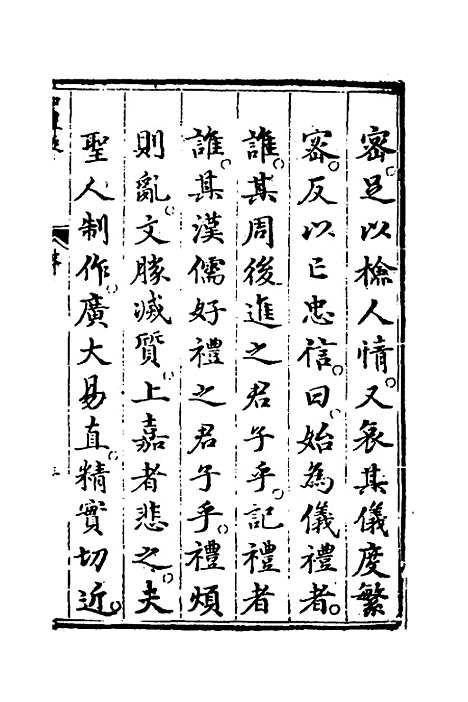 密足以檢人情又哀其儀度繁
密反以亡忠信曰始為儀禮者
誰其周後進之君子乎記禮者
誰其漢儒好禮之君子乎禮煩
則亂文勝滅質上嘉者悲之夫
聖人制作廣大易直精實切近